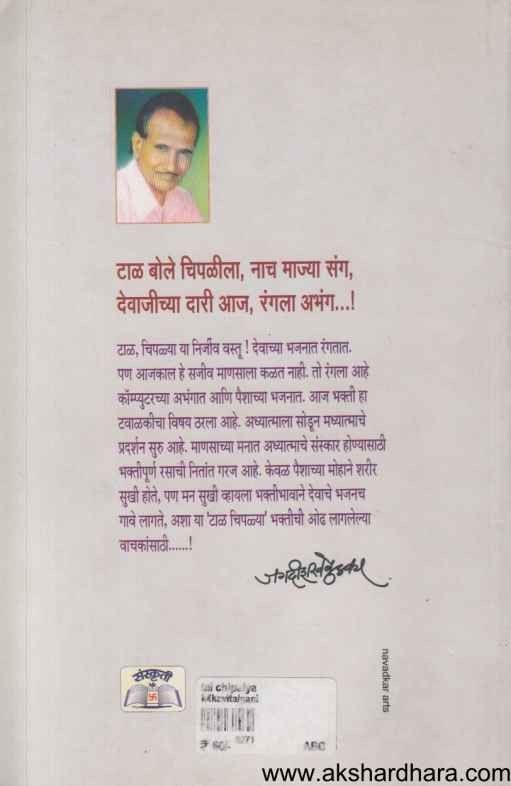 टाळ बोले चिपळीला, नाच माज्या संग,
देवाजीच्या दारी आज, रंगला अभंग...!
टाळ, चिपळ्या या निर्जीव वस्तू ! देवाच्या भजनात रंगतात.
पण आजकाल हे सजीव माणसाला कळत नाही. तो रंगला आहे
कॉम्प्युटरच्या अभंगात आणि पैशाच्या भजनात. आज भक्ती हा
टवाळकीचा विषय ठरला आहे. अध्यात्माला सोडून मध्यात्माचे
प्रदर्शन सुरु आहे. माणसाच्या मनात अध्यात्माचे संस्कार होण्यासाठी
भक्तीपूर्ण रसाची नितांत गरज आहे. केवळ पैशाच्या मोहाने शरीर
सुखी होते, पण मन सुखी व्हायला भक्तीभावाने देवाचे भजनच
गावे लागते, अशा या 'टाळ चिपळ्या' भक्तीची ओढ लागलेल्या
वाचकांसाठी......!
navadkar arts
संस्कृती
tal chipalya
₹ 60/-
ABC
www.akshardhara.com